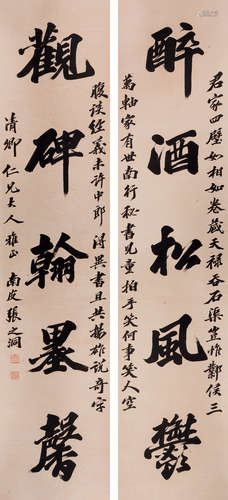 君家四壁如相如卷藏天祿吞石渠豈惟鄴侯三
醉酒松風鬱
萬軸家有世南行秘書兒童拍手笑何事笑人空
腹談經義未許中郎得異書且共揚雄說奇字
觀碑翰墨馨
清卿仁兄大人雅正 南皮張之洞